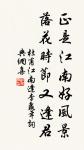 正是江南好風景
落花時節又逢君
杜甫江南逢李龜年詞
典網集